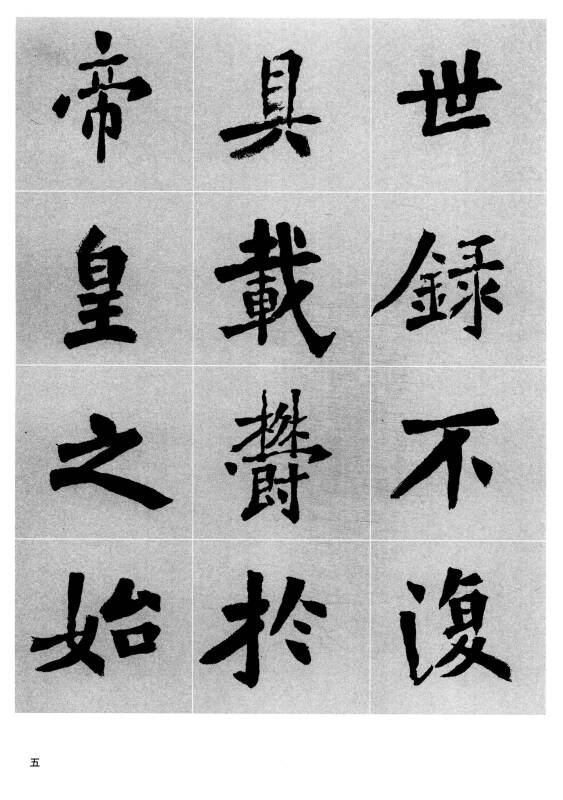 世錄不復
具載鬱於
帝皇之始
五